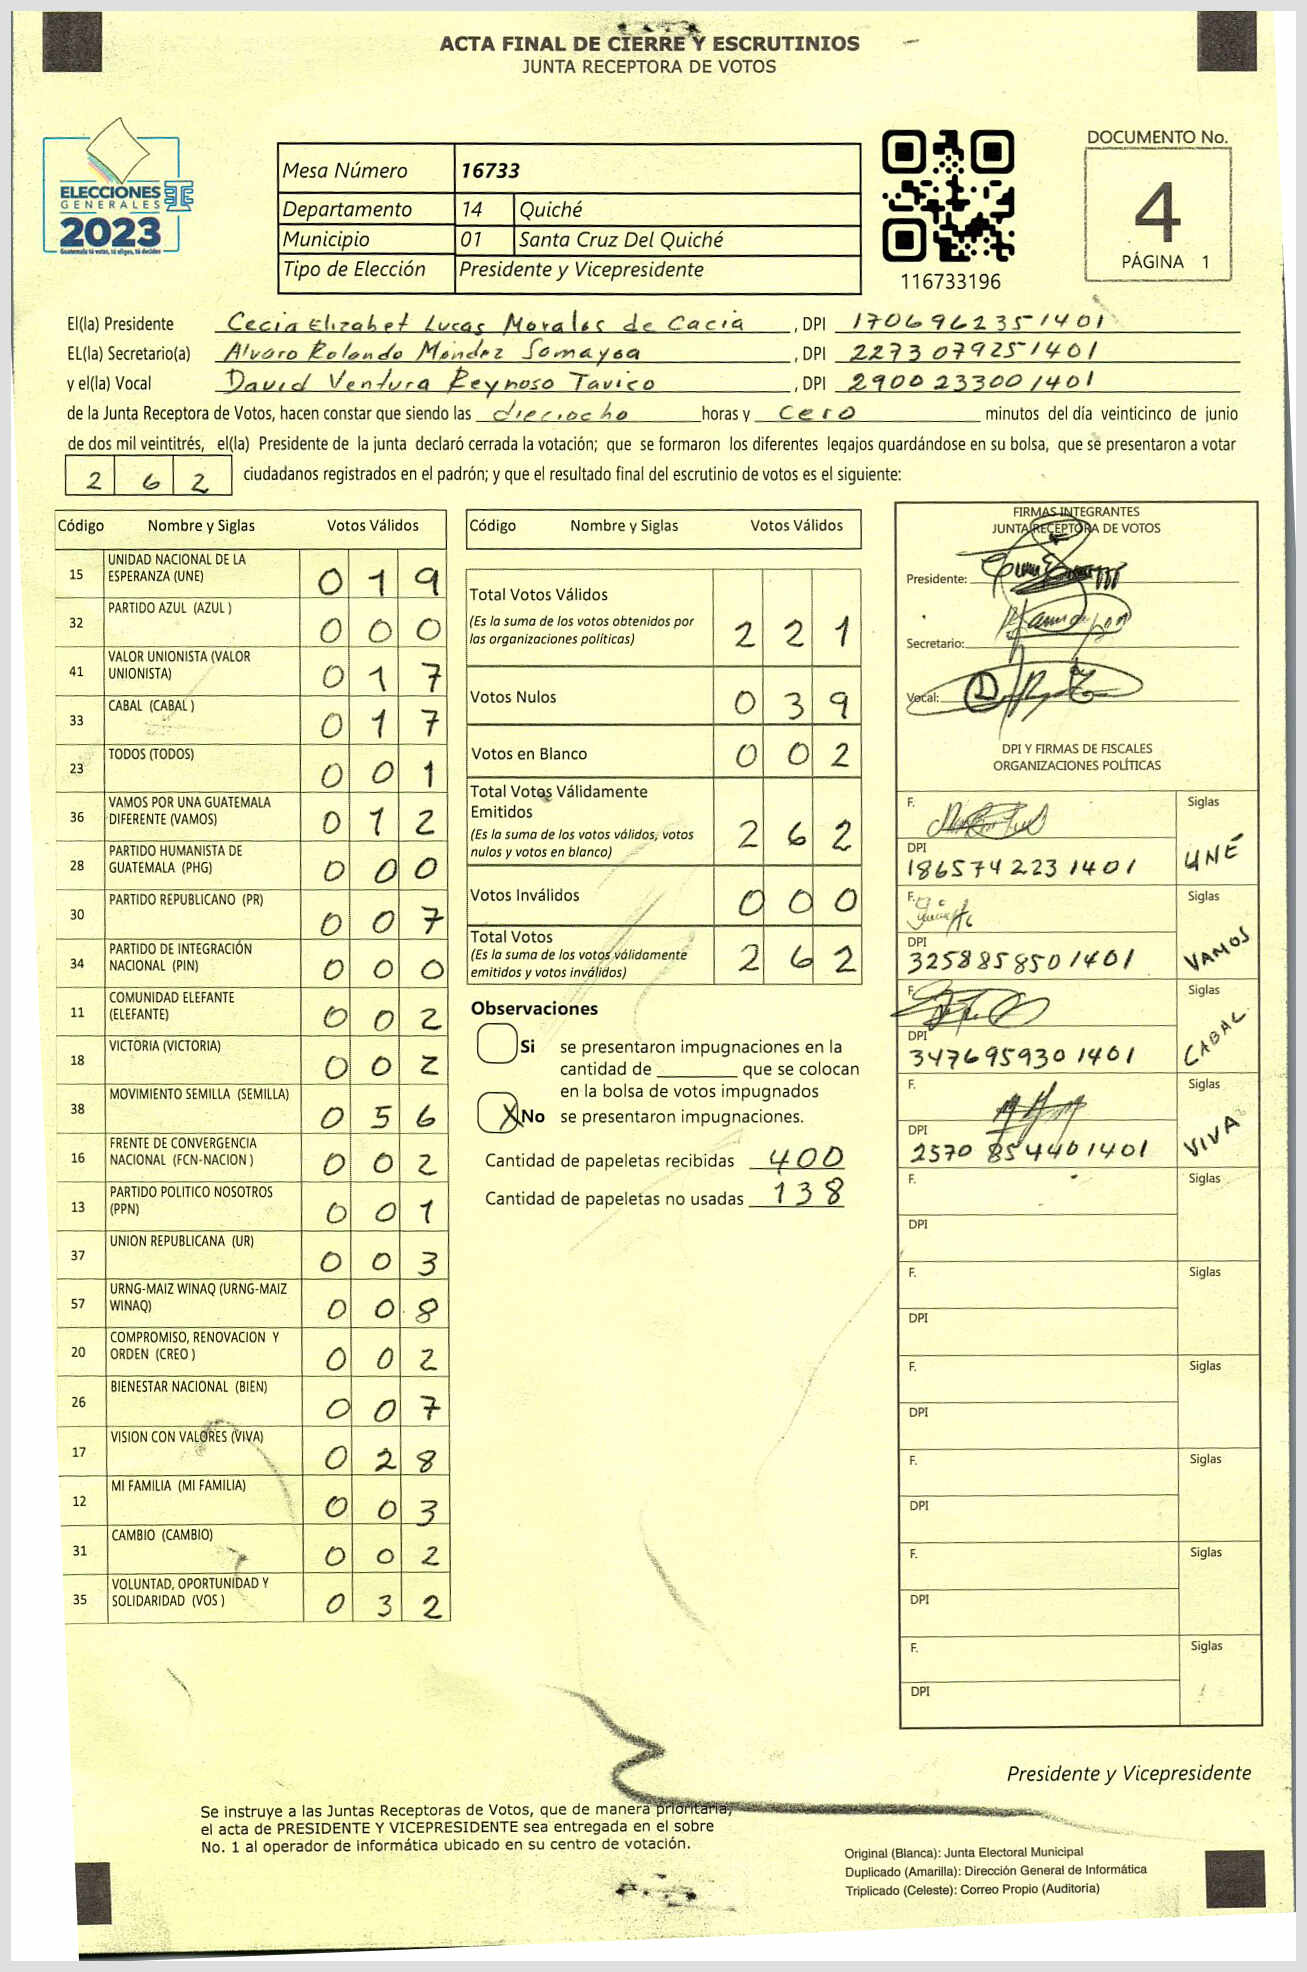 ACTA FINAL DE CIERRE Y ESCRUTINIOS
JUNTA RECEPTORA DE VOTOS
ELECCIONES
GENERALES
2023
Guatemala tú votas, tú eliges, tú decides
Mesa Número 16733
Departamento 14 Quiché
Municipio 01 Santa Cruz Del Quiché
Tipo de Elección Presidente y Vicepresidente
116733196
DOCUMENTO No.
4
PÁGINA 1
El(la) Presidente Cecia Elizabet Lucas Morales de Cacia, DPI 1706962351401
EL(la) Secretario(a) Alvaro Rolando Méndez Somayoa, DPI 2273079251401
y el(la) Vocal David Ventura Reynoso Tavico, DPI 2900233001401
de la Junta Receptora de Votos, hacen constar que siendo las dieciocho horas y cero minutos del día veinticinco de junio
de dos mil veintitrés, el(la) Presidente de la junta declaró cerrada la votación; que se formaron los diferentes legajos guardándose en su bolsa, que se presentaron a votar
262 ciudadanos registrados en el padrón; y que el resultado final del escrutinio de votos es el siguiente:
Código Nombre y Siglas Votos Válidos
15 UNIDAD NACIONAL DE LA
ESPERANZA (UNE) 019
32 PARTIDO AZUL (AZUL ) 000
41 VALOR UNIONISTA (VALOR
UNIONISTA) 017
33 CABAL (CABAL ) 017
23 TODOS (TODOS) 001
36 VAMOS POR UNA GUATEMALA
DIFERENTE (VAMOS) 012
28 PARTIDO HUMANISTA DE
GUATEMALA (PHG) 000
30 PARTIDO REPUBLICANO (PR) 007
34 PARTIDO DE INTEGRACIÓN
NACIONAL (PIN) 000
11 COMUNIDAD ELEFANTE
(ELEFANTE) 002
18 VICTORIA (VICTORIA) 002
38 MOVIMIENTO SEMILLA (SEMILLA) 056
16 FRENTE DE CONVERGENCIA
NACIONAL (FCN-NACION ) 002
13 PARTIDO POLITICO NOSOTROS
(PPN) 001
37 UNION REPUBLICANA (UR) 003
57 URNG-MAIZ WINAQ (URNG-MAIZ
WINAQ) 008
20 COMPROMISO, RENOVACION Y
ORDEN (CREO ) 002
26 BIENESTAR NACIONAL (BIEN) 007
17 VISION CON VALORES (VIVA) 028
12 MI FAMILIA (MI FAMILIA) 003
31 CAMBIO (CAMBIO) 002
35 VOLUNTAD, OPORTUNIDAD Y
SOLIDARIDAD (VOS ) 032
Código Nombre y Siglas Votos Válidos
Total Votos Válidos
(Es la suma de los votos obtenidos por
las organizaciones políticas) 221
Votos Nulos 039
Votos en Blanco 002
Total Votos Válidamente
Emitidos
(Es la suma de los votos válidos, votos
nulos y votos en blanco) 262
Votos Inválidos 000
Total Votos
(Es la suma de los votos válidamente
emitidos y votos inválidos) 262
Observaciones
Si se presentaron impugnaciones en la
cantidad de ________ que se colocan
en la bolsa de votos impugnados
X No se presentaron impugnaciones.
Cantidad de papeletas recibidas 400
Cantidad de papeletas no usadas 138
FIRMAS INTEGRANTES
JUNTA RECEPTORA DE VOTOS
Presidente:
Secretario:
Vocal:
DPI Y FIRMAS DE FISCALES
ORGANIZACIONES POLÍTICAS
F. Siglas
DPI
186574223 1401 UNE
F. Siglas
DPI
3258858501401 VAMOS
F. Siglas
DPI
3476959301401 CABAL
F. Siglas
DPI
2570 854401401 VIVA
F. Siglas
DPI
F. Siglas
DPI
F. Siglas
DPI
F. Siglas
DPI
F. Siglas
DPI
F. Siglas
DPI
Presidente y Vicepresidente
Se instruye a las Juntas Receptoras de Votos, que de manera prioritaria,
el acta de PRESIDENTE Y VICEPRESIDENTE sea entregada en el sobre
No. 1 al operador de informática ubicado en su centro de votación.
Original (Blanca): Junta Electoral Municipal
Duplicado (Amarilla): Dirección General de Informática
Triplicado (Celeste): Correo Propio (Auditoría)